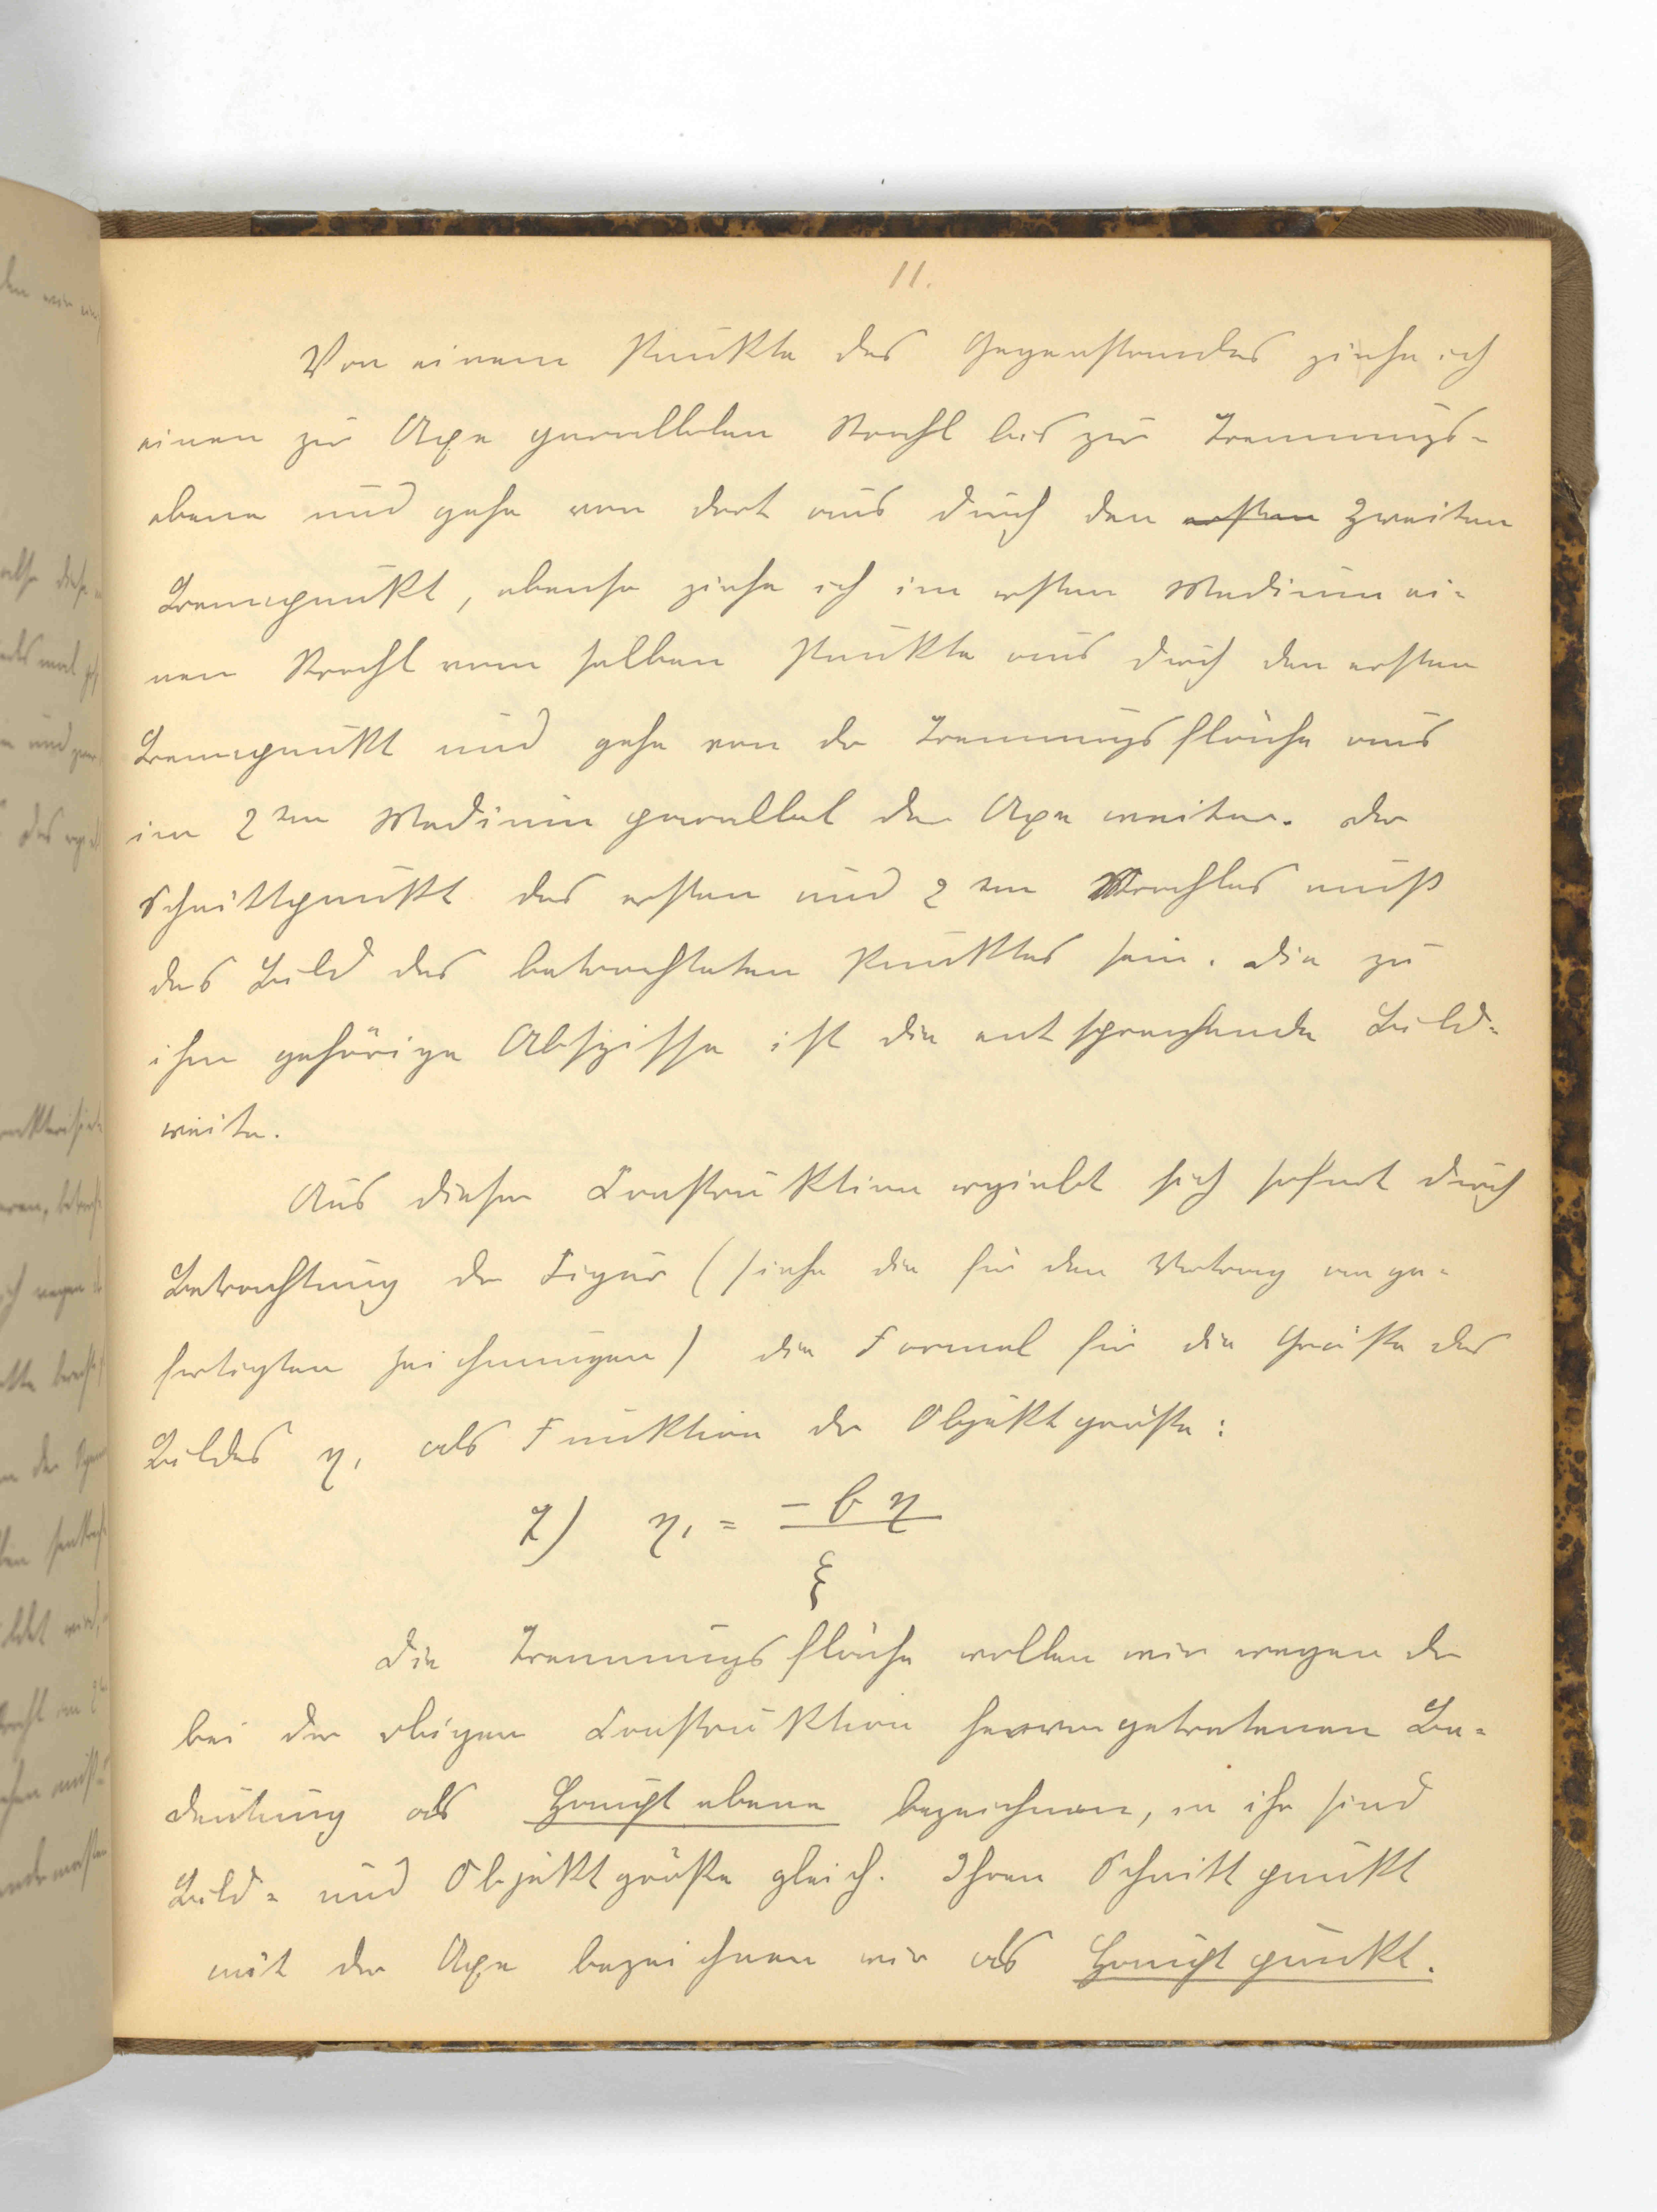 11.
Von einem Punkte des Gegenstandes ziehe ich
einen zur Axe parallelen Strahl bis zur Trennungs-
ebene und gehe von dort aus durch den ersten zweiten
Brennpunkt, ebenso ziehe ich im ersten Medium ei-
nen Strahl vom selben Punkte aus durch den ersten
Brennpunkt und gehe von der Trennungsfläche aus
im 2ten Medium parallel der Axe weiter. Der
Schnittpunkt des ersten und 2ten Strahles muß
das Bild des betrachteten Punktes sein. Die zu
ihm gehörige Abszisse ist die entsprechende Bild-
weite.
Aus dieser Construktion ergiebt sich sofort durch
Betrachtung der Figur (siehe die für den Vortrag ange-
fertigten Zeichnungen) die Formel für die Größe des
Bildes η₁ als Funktion der Objektgröße:
7) η₁ = −b η / ξ
Die Trennungsfläche wollen wir wegen der
bei der obigen Construktion hervorgetretenen Be-
deutung als Hauptebene bezeichnen, in ihr sind
Bild- und Objektgröße gleich. Ihren Schnittpunkt
mit der Axe bezeichnen wir als Hauptpunkt.